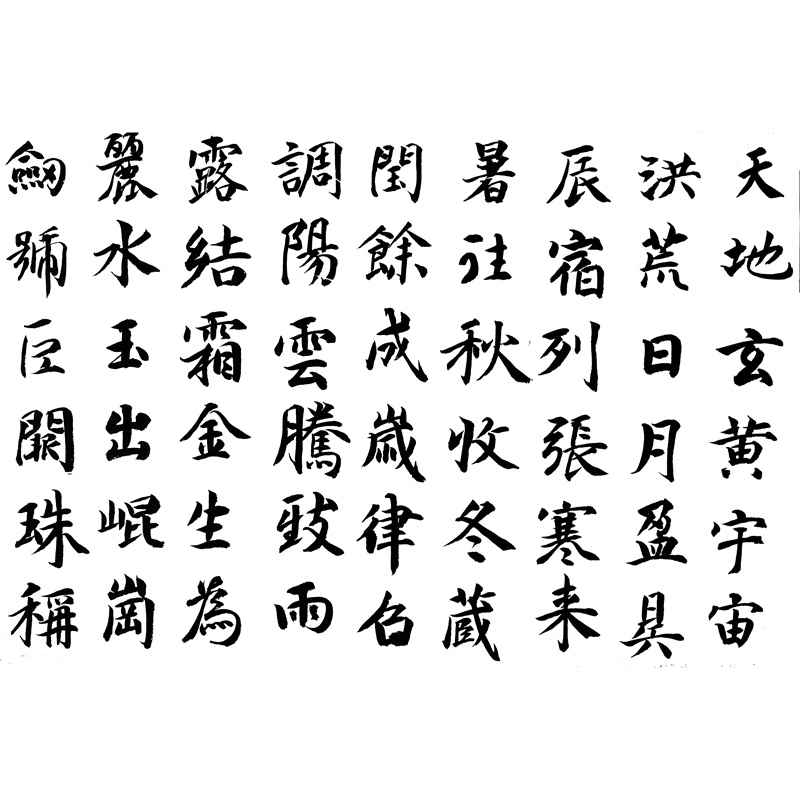 天地玄黄宇宙
洪荒日月盈昃
辰宿列張寒来
暑往秋收冬蔵
閏餘成歲律召
調陽雲騰致雨
露結霜金生為
麗水玉出崐崗
劒號巨闕珠稱